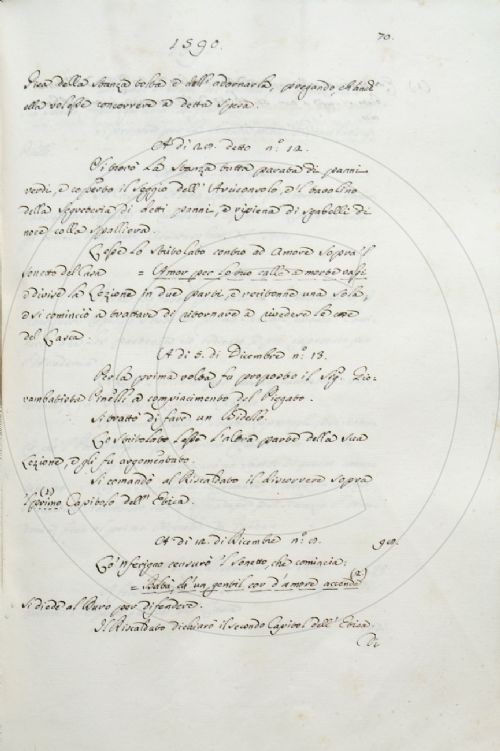 1590.
70.
stica della Stanza tolta e dell' adornarla, pregando
ella volesse concorrere a detta spesa.
A dì 20. detto n.º 12.
Si trovò la Stanza tutta parata di panni
verdi, e coperto il Seggio dell' Arciconsolo, e 'l tavolino
della Segreteria di detti panni, e ripiena di sgabelli di
noce colla spalliera.
Lesse lo Stritolato contro ad Amore sopra 'l
Sonetto del Casa = Amor per lo tuo calle a morte vassi
e divise la Lezione in due parti, e recitonne una sola,
e si cominciò a trattare di ritornare a rivedere le cose
del Casca.
A dì 5. di Dicembre n.º 13.
Per la prima volta fu proposto il Sig. Gio:
vambatista Pinelli a compiacimento del Piegato.
Si trattò di fare un Bidello.
Lo Stritolato lesse l'altra parte della sua
Lezione, e gli fu argomentato.
Si comandò al Riscaldato il discorrere sopra
il primo (1) Capitolo dell' Etica.
A dì 12. di Dicembre n.º
Lo 'nferigno censurò 'l Sonetto, che comincia:
= gentil cor d'amore accende (2)
si diede al Duro per difendere.
Il Riscaldato dichiarò il secondo Capitol dell' Etica.